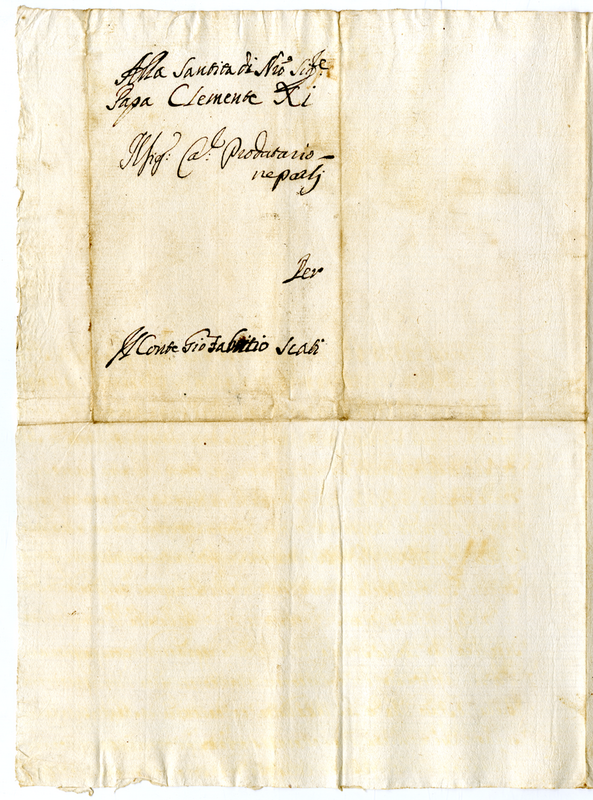 Alla Santita di Nro Sigre
Papa Clemente Xi
Il sigr: Cal. Prodatario
ne parlj
Per
Il Conte Gio Fabritio Scati